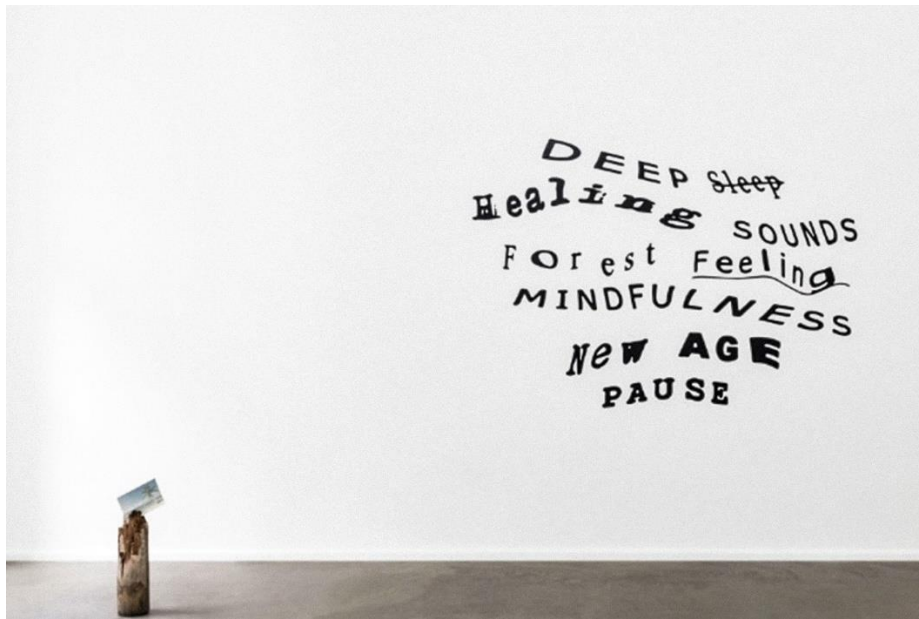 DEEP Sleep
Healing SOUNDS
Forest Feeling
MINDFULNESS
New AGE
PAUSE